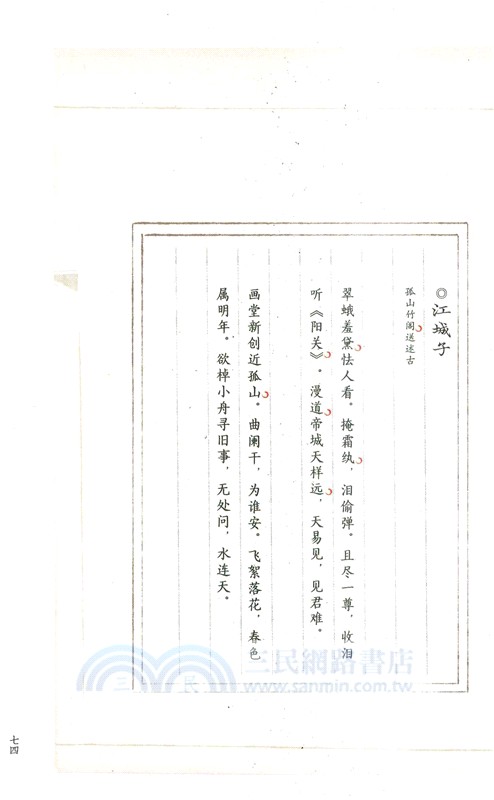 ◎江城子
孤山竹阁送述古
翠蛾羞黛怯人看。掩霜纨，泪偷弹。且尽一尊，收泪
听《阳关》。漫道帝城天样远，天易见，见君难。
画堂新创近孤山。曲阑干，为谁安。飞絮落花，春色
属明年。欲棹小舟寻旧事，无处问，水连天。
七四
三民網路書店
www.sanmin.com.tw
三 民